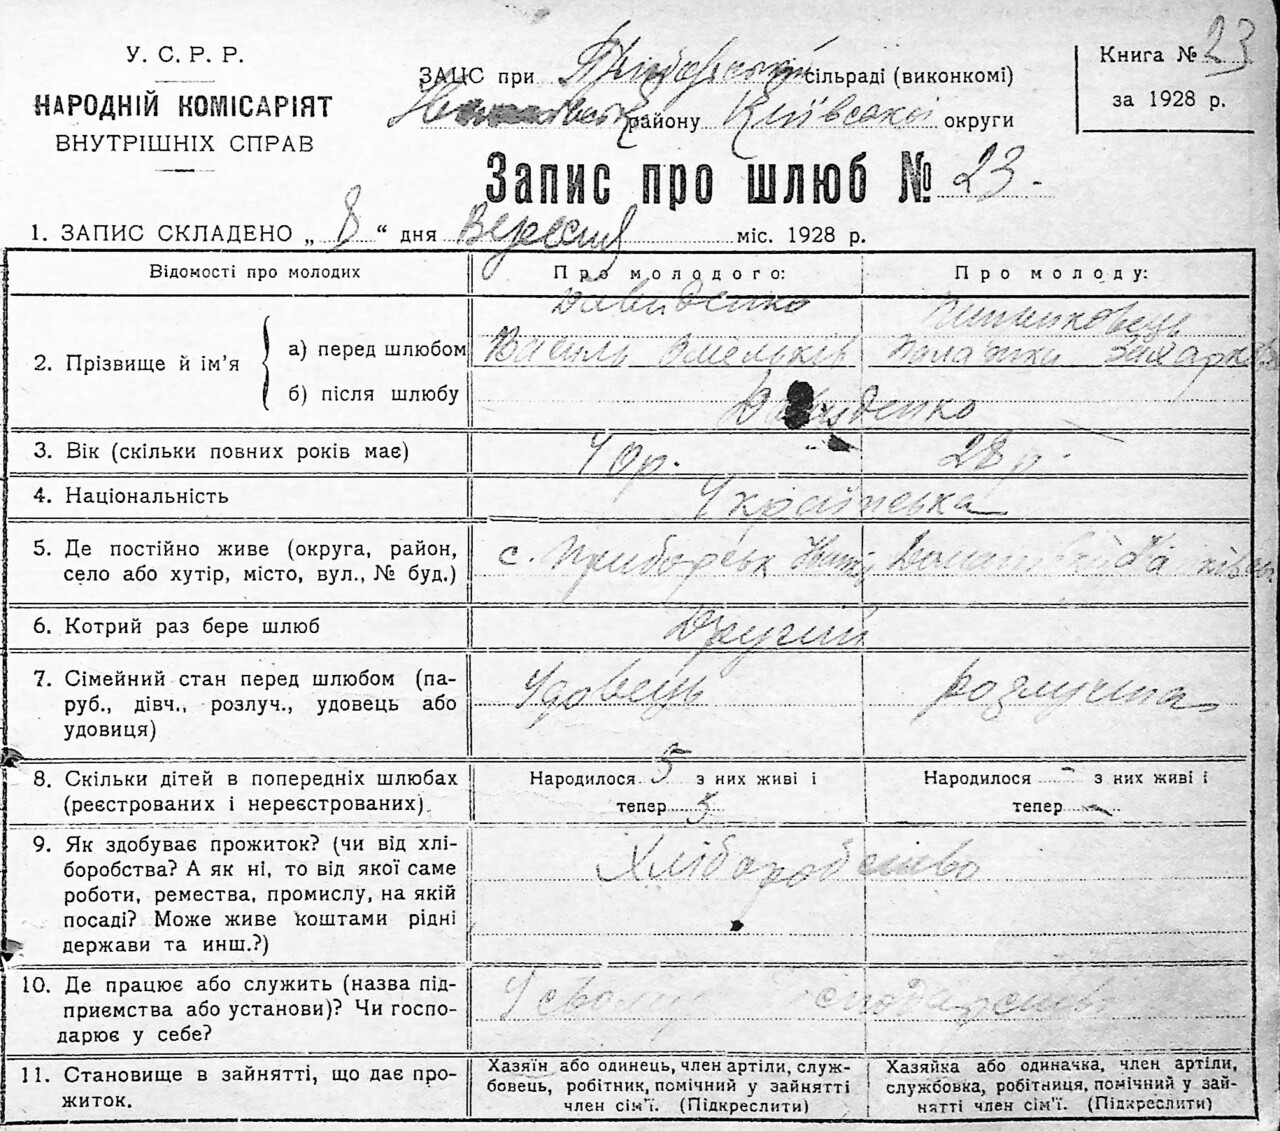 У. С. Р. Р.
НАРОДНІЙ КОМІСАРІЯТ
ВНУТРІШНІХ СПРАВ
ЗАЦС при сільраді (виконкомі)
району Київської округи
Книга № 23
за 1928 р.
Запис про шлюб № 23.
1. ЗАПИС СКЛАДЕНО „ 8 “ дня Вересня міс. 1928 р.
Відомості про молодих
Про молодого:
Про молоду:
2. Прізвище й ім’я
а) перед шлюбом
Давиденко
Василь Омельків
б) після шлюбу
Давиденко
3. Вік (скільки повних років має)
40р.
28 р.
4. Національність
Українська
5. Де постійно живе (округа, район,
село або хутір, місто, вул., № буд.)
с. Приборськ
6. Котрий раз бере шлюб
Другий
7. Сімейний стан перед шлюбом (па-
руб., дівч., розлуч., удовець або
удовиця)
Удовець
розлучена
8. Скільки дітей в попередніх шлюбах
(реєстрованих і нереєстрованих)
Народилося 5 з них живі і
тепер 5
Народилося - з них живі і
тепер -
9. Як здобуває прожиток? (чи від хлі-
боробства? А як ні, то від якої саме
роботи, ремества, промислу, на якій
посаді? Може живе коштами рідні
держави та инш.?)
Хліборобство
10. Де працює або служить (назва під-
приємства або установи)? Чи госпо-
дарює у себе?
У своєму господарстві
11. Становище в зайнятті, що дає про-
житок.
Хазяїн або одинець, член артіли, служ-
бовець, робітник, помічний у зайнятті
член сім’ї. (Підкреслити)
Хазяйка або одиначка, член артіли,
службовка, робітниця, помічний у зай-
нятті член сім’ї. (Підкреслити)